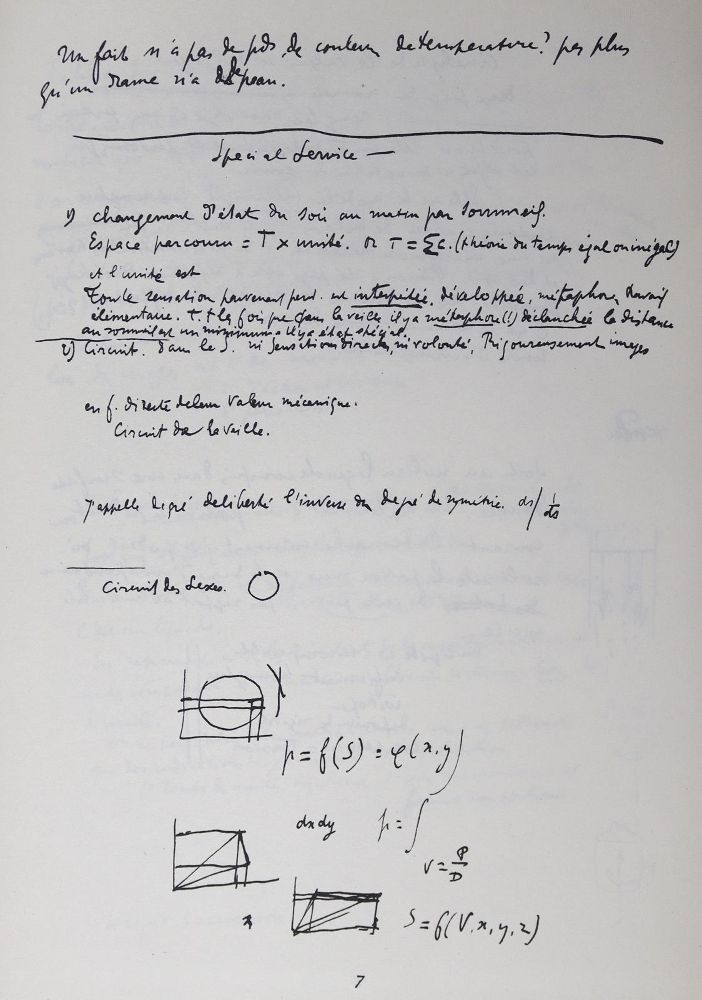 Un fait n'a pas de pds, de couleur de température? pas plus
qu'un drame n'a de peau.
Special Service —
1) changement d'état du soir au matin par sommeil.
Espace parcouru = T x unité. or T = Σc. (théorie du temps égal ou inégal)
et l'unité est
Toute sensation parvenant pend. est interprétée, développée, métaphore, travail
élémentaire. t. t la fois que dans la veille il y a métaphore (!) déclanchée la distance
au sommeil est un minimum il y a état spécial.
2) Circuit. dans le S. ni sensation directe, ni volonté, Rigoureusement images
en f. directe de leur valeur mécanique.
Circuit de la veille.
J'appelle degré de liberté l'inverse du degré de symétrie. ds / 1/ds
Circuit des Sexes.
p = f(S) = φ(x, y)
dx dy p = ∫
V = P/D
S = f(V, x, y, z)
7